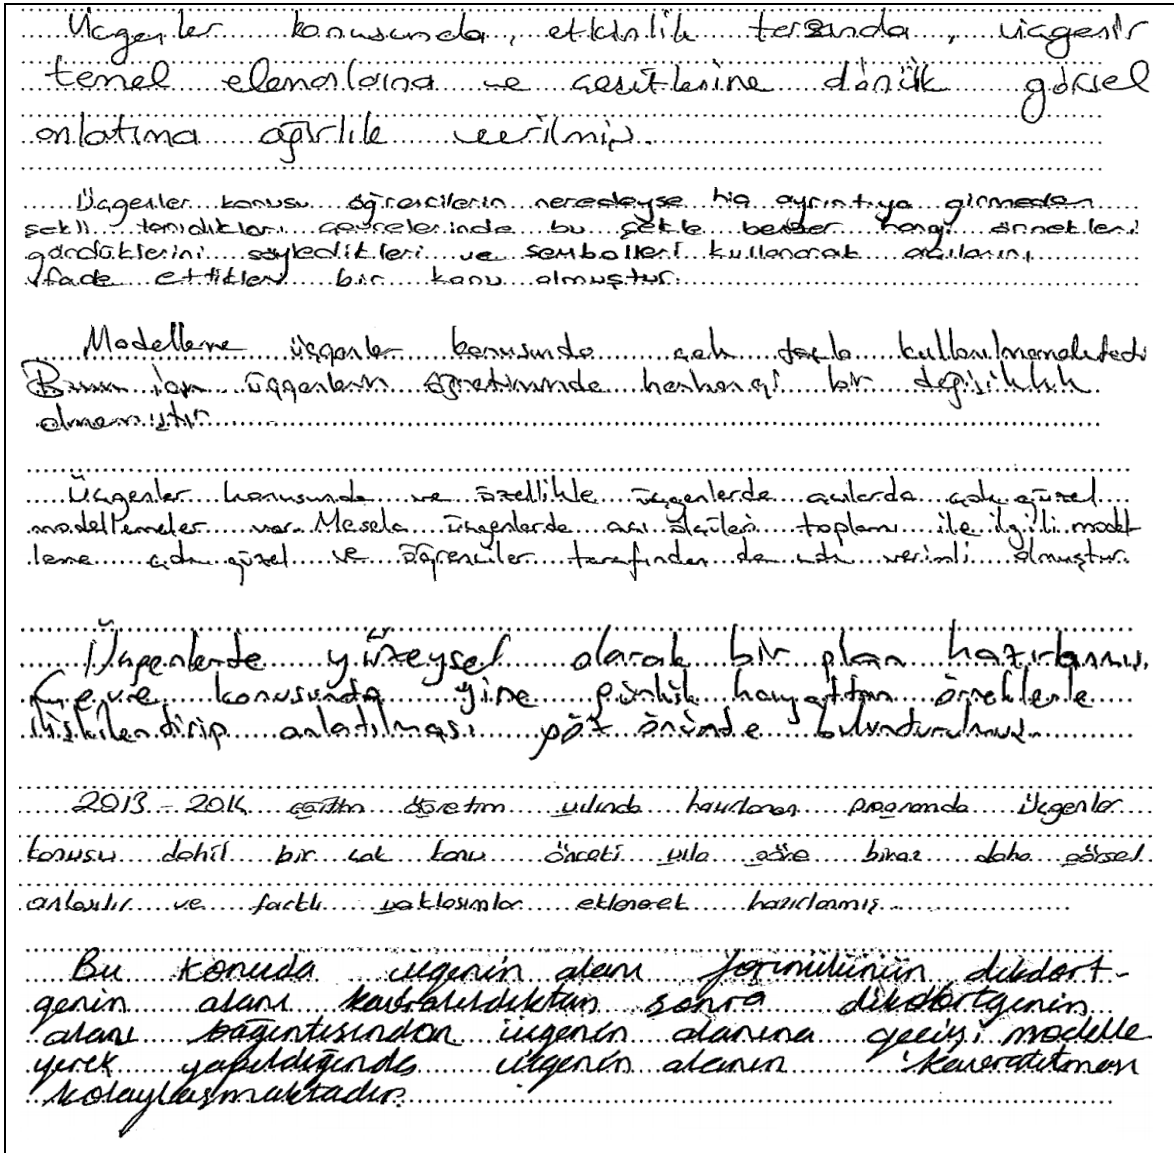 Üçgenler konusunda, etkinlik tarzında, üçgenin
temel elemanlarına ve çeşitlerine dönük görsel
anlatıma ağırlık verilmiş.
Üçgenler konusu öğrencilerin neredeyse hiç ayrıntıya girmeden
şekli tanıdıkları çevrelerinde bu şekle benzer hangi örnekleri
gördüklerini söyledikleri ve sembolleri kullanarak açılarını
ifade ettikleri bir konu olmuştur.
Modelleme üçgenler konusunda çok fazla kullanılmamaktadır
Bunun için üçgenlerin öğretiminde herhangi bir değişiklik
olmamıştır.
Üçgenler konusunda ve özellikle üçgenlerde açılarda çok güzel
modellemeler var. Mesela üçgenlerde açı ölçüleri toplamı ile ilgili model
leme çok güzel ve öğrenciler tarafından da çok verimli olmuştur.
Üçgenlerde yüzeysel olarak bir plan hazırlanmış.
Çevre konusunda yine günlük hayattan örneklerle
ilişkilendirip anlatılması göz önünde bulundurulmuş.
2013-2014 eğitim öğretim yılında hazırlanan programda üçgenler
konusu dahil bir çok konu önceki yıla göre biraz daha görsel
anlaşılır ve farklı yaklaşımlar eklenerek hazırlanmış.
Bu konuda üçgenin alanı formülünün dikdört-
genin alanı kavratıldıktan sonra dikdörtgenin
alanı bağıntısından üçgenin alanına geçişi modelle
yerek yapıldığında üçgenin alanının kavratılması
kolaylaşmaktadır.